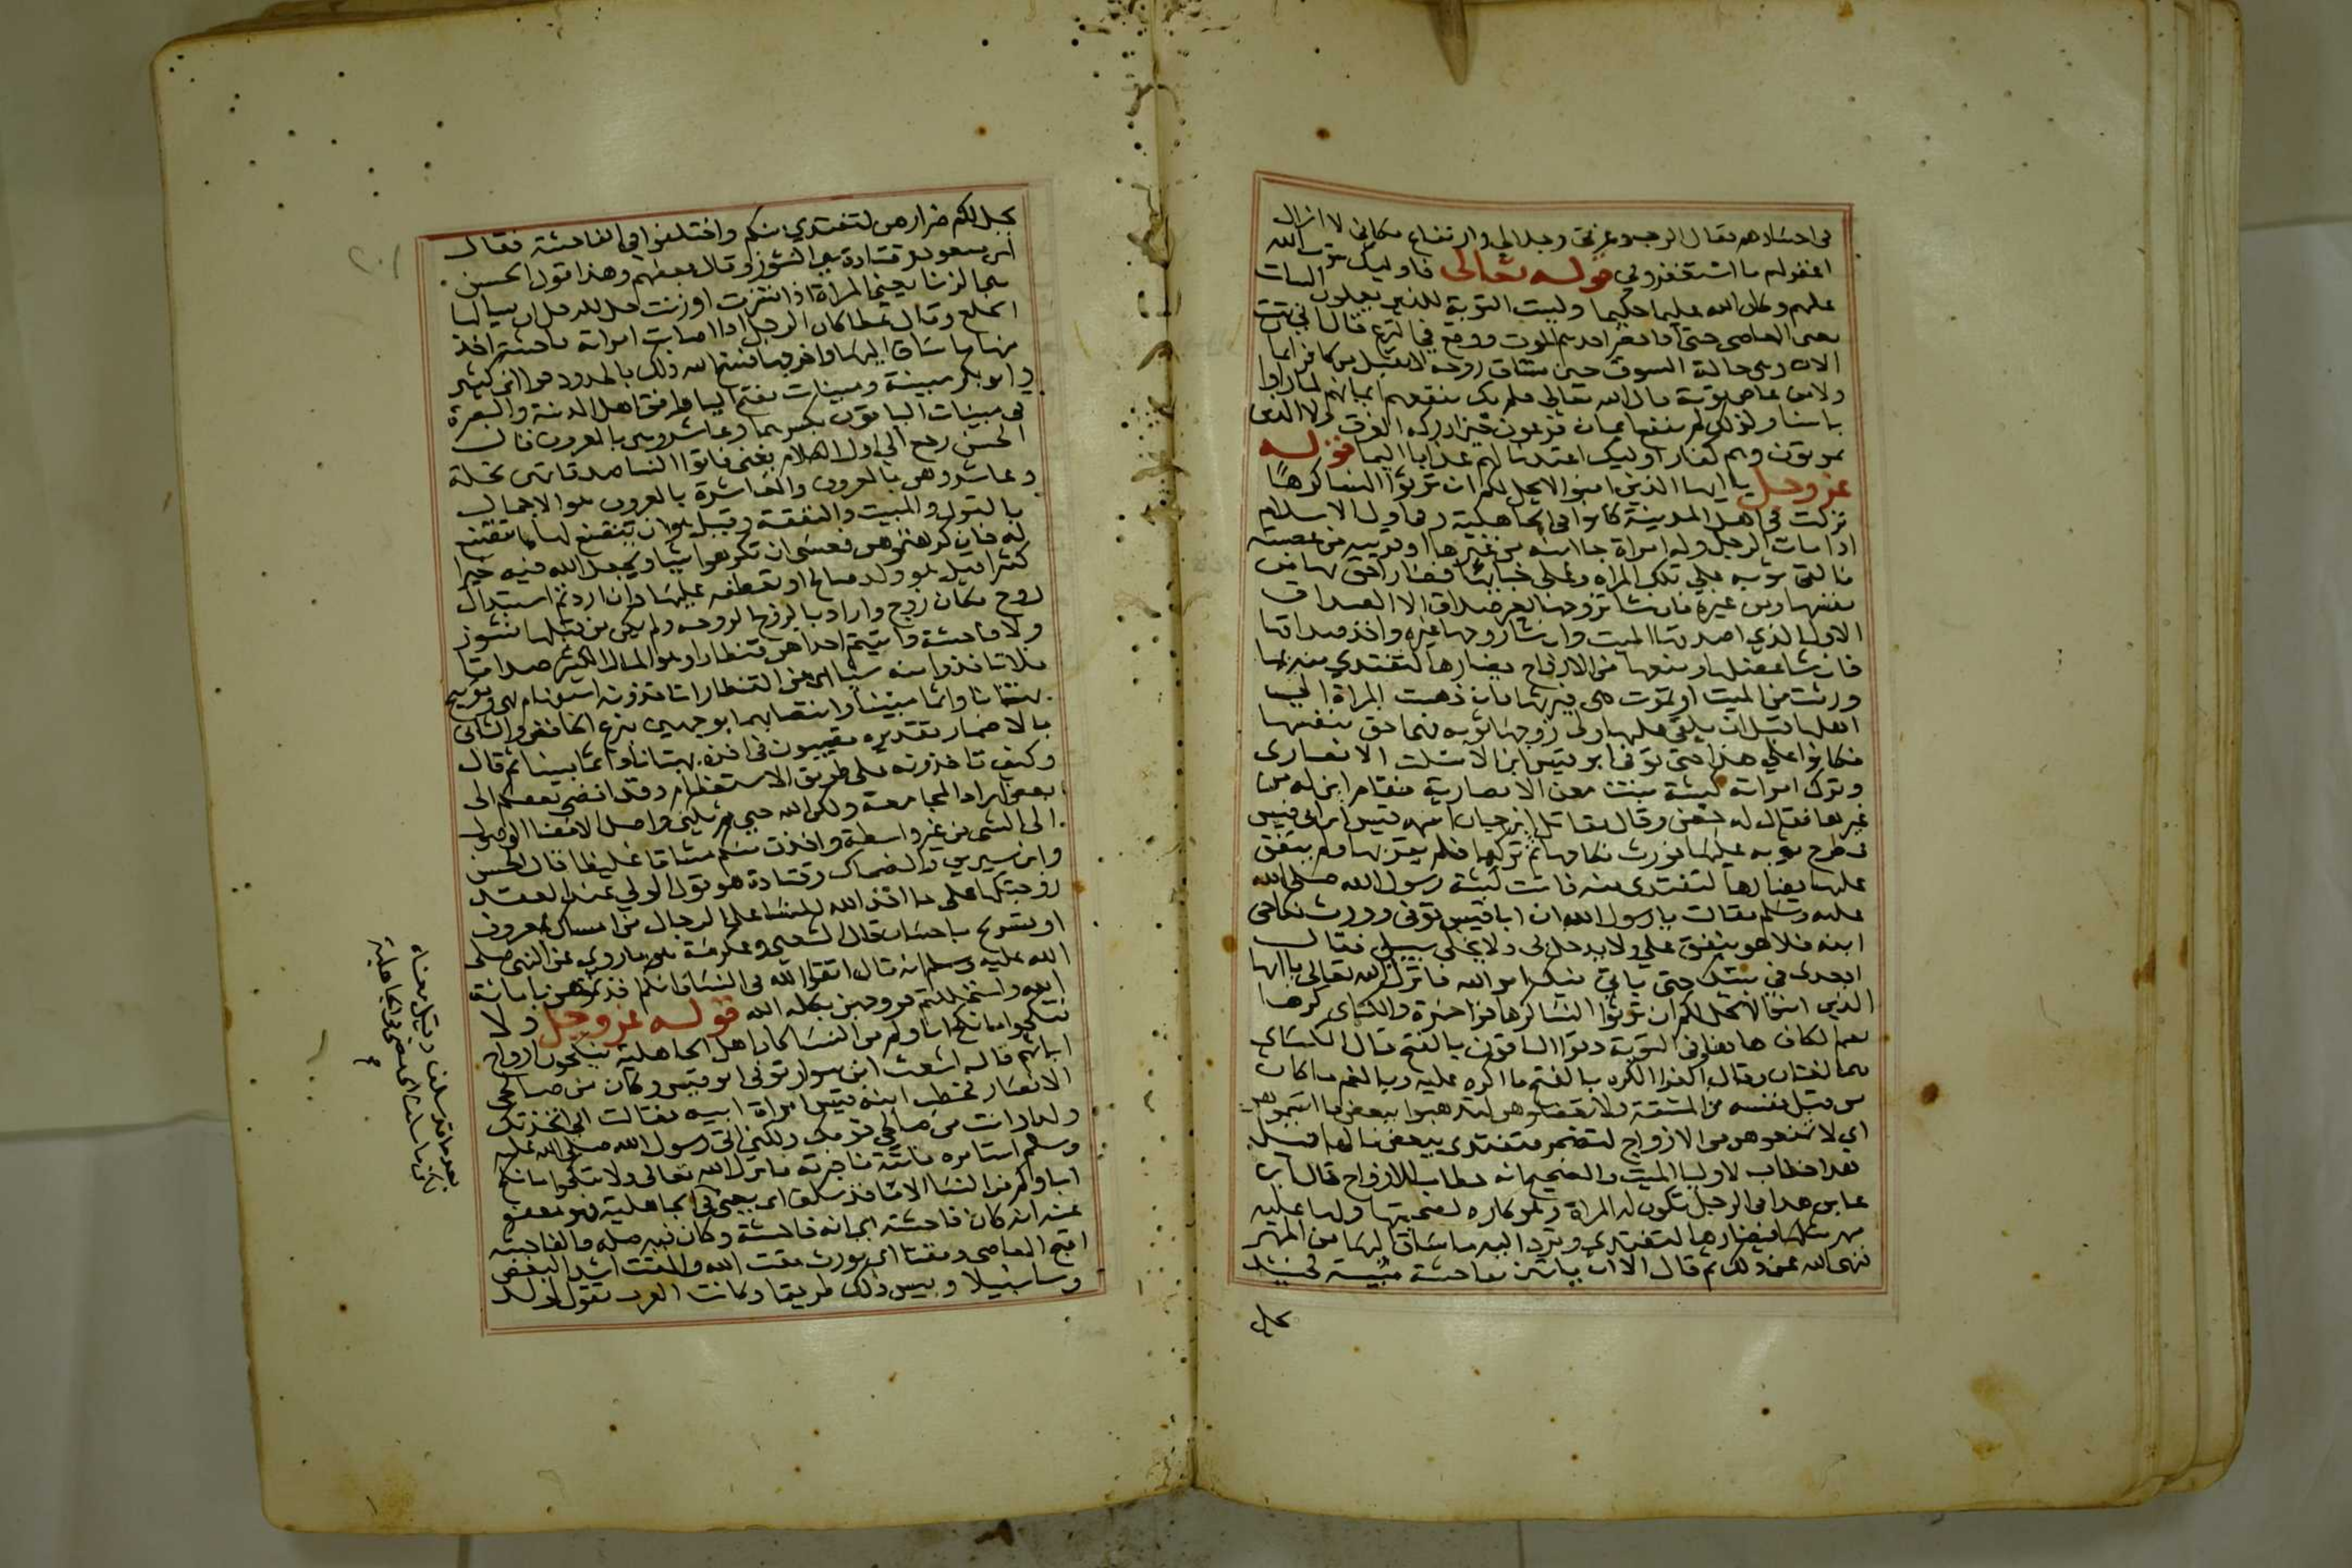 في اجسادهم فقال الرب وعزتي وجلالي وارتفاع مكاني لا ازال
اغفر لهم ما استغفروني قوله تعالى فاوليك يتوب الله
عليهم وكان الله عليما حكيما وليست التوبة للذين يعملون السيات
يعني المعاصي حتى اذا حضر احدهم الموت ووقع في النزع قال اني تبت
الان وهي حالة السوق حين تساق روحه لا يقبل من كافر ايمان
ولا من عاص توبة قال الله تعالى فلم يك ينفعهم ايمانهم لما راوا
باسنا ولذلك لم ينفع ايمان فرعون حين ادركه الغرق ولا الذين
يموتون وهم كفار اوليك اعتدنا لهم عذابا اليما قوله
عز وجل يا ايها الذين امنوا لا يحل لكم ان ترثوا النسا كرها
نزلت في اهل المدينة كانوا في الجاهلية وفي اول الاسلام
اذا مات الرجل وله امراة جا ابنه من غيرها او قريبه من عصبته
فالقى ثوبه على تلك المراه وعلى خبايها فصار احق بها من
نفسها ومن غيره فان شا تزوجها بغير صداق الا الصداق
الاول الذي اصدقها الميت وان شا زوجها غيره واخذ صداقها
فان شا عضلها ومنعها من الازواج يضارها لتفتدي منه بما
ورثت من الميت او تموت هي فيرثها فان ذهبت المراة الى
اهلها قبل ان يلقي عليها ولي زوجها ثوبه فهي احق بنفسها
فكانوا على هذا حتى توفي ابو قيس ابن الاسلت الانصاري
وترك امراته كبيشة بنت معن الانصارية فقام ابن له من
غيرها فقال له حصن وقال مقاتل ابن حيان اسمه قيس ابن ابي قيس
فطرح ثوبه عليها فورث نكاحها ثم تركها فلم يقربها ولم ينفق
عليها يضارها لتفتدي منه فاتت كبيشة رسول الله صلى الله
عليه وسلم فقالت يا رسول الله ان ابا قيس توفي وورث نكاحي
ابنه فلا هو ينفق علي ولا يدخل بي ولا يخلي سبيلي فقال
اقعدي في بيتك حتى ياتي فيك امر الله فانزل الله تعالى يا ايها
الذين امنوا لا يحل لكم ان ترثوا النسا كرها قرا حمزة والكساي كرها
بضم الكاف ها هنا وفي التوبة وقرا الباقون بالفتح قال الكساي
هما لغتان وقال الفرا الكره بالفتح ما اكره عليه وبالضم ما كان
من قبل نفسه من المشقة ولا تعضلوهن لتذهبوا ببعض ما اتيتموهن
اي لا تمنعوهن من الازواج لتضجر فتفتدي ببعض مالها قيل
هذا خطاب لاوليا الميت والصحيح انه خطاب للازواج قال ابن
عباس هذا في الرجل تكون له المراة وهو كاره لصحبتها ولها عليه
مهر مثلها فيضارها لتفتدي وترد اليه ما ساق اليها من المهر
فنهى الله عن ذلك ثم قال الا ان ياتين بفاحشة مبينة فحينئذ
يحل
يحل لكم ضرارهن لتفتدي منكم واختلفوا في الفاحشة فقال
ابن مسعود وقتادة هي النشوز وقال بعضهم وهذا قول الحسن
هي الزنا يعني المراة اذا نشزت او زنت حل للرجل ان يسالها
الخلع وقال عطا كان الرجل اذا اصابت امراته فاحشة اخذ
منها ما ساق اليها واخرجها فنسخ الله ذلك بالحدود قرا ابن كثير
وابو بكر مبينة ومبينات بفتح اليا وافق اهل المدينة والبصرة
في مبينات الباقون بكسرهما وعاشروهن بالمعروف قال
الحسن رجع الى اول الكلام يعني فاتوا النسا صدقاتهن نحلة
وعاشروهن بالمعروف والمعاشرة بالمعروف هو الاجمال
بالقول والمبيت والنفقة وقيل هو ان يتصنع لها كما تتصنع
له فان كرهتموهن فعسى ان تكرهوا شيا ويجعل الله فيه خيرا
كثيرا قيل هو ولد صالح او يعطفه عليها وان اردتم استبدال
زوج مكان زوج واراد بالزوج الزوجه ولم يكن من قبلها نشوز
ولا فاحشة واتيتم احداهن قنطارا وهو المال الكثير صداقا
فلا تاخذوا منه شيا اي من القنطار اتاخذونه استفهام نهي وتوبيخ
بهتانا واثما مبينا وانتصابهما بوجهين بنزع الخافض والثاني
بالاضمار تقديره تصيبون في اخذه بهتانا واثما مبينا ثم قال
وكيف تاخذونه على طريق الاستعظام وقد افضى بعضكم الى
بعض اراد المجامعة ولكن الله حيي يكني واصل الافضا الوصول
الى الشي من غير واسطة واخذن منكم ميثاقا غليظا قال الحسن
وابن سيرين والضحاك وقتادة هو قول الولي عند العقد
زوجتكها على ما اخذ الله للنسا على الرجال من امساك بمعروف
او تسريح باحسان قال الشعبي وعكرمة هو ما روي عن النبي صلى
الله عليه وسلم انه قال اتقوا الله في النسا فانكم اخذتموهن بامانة
الله واستحللتم فروجهن بكلمة الله قوله عز وجل ولا
تنكحوا ما نكح اباوكم من النسا كان اهل الجاهلية ينكحون ازواج
ابايهم قال اشعث ابن سوار توفي ابو قيس وكان من صالحي
الانصار فخطب ابنه قيس امراة ابيه فقالت اني اتخذتك
ولدا وانت من صالحي قومك ولكني اتي رسول الله صلى الله عليه
وسلم استامره فاتته فاخبرته فانزل الله تعالى ولا تنكحوا ما نكح
اباوكم من النسا الا ما قد سلف اي مضى في الجاهلية فهو معفو
عنه انه كان فاحشة اي انه فاحشة وكان فيه صلة والفاحشة
اقبح المعاصي ومقتا اي يورث مقت الله والمقت اشد البغض
وسا سبيلا وبيس ذلك طريقا وكانت العرب تقول لولد